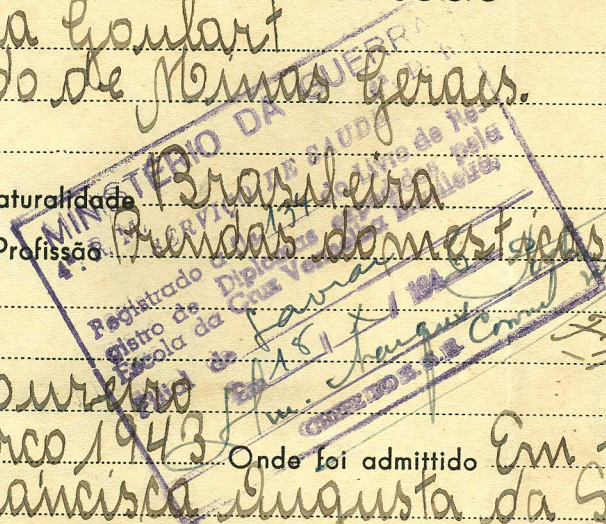 a Goulart
do de Minas Geraes.
aturalidade Brasileira
Profissão Prendas domesticas
MINISTÉRIO DA GUERRA
4.ª R. M. SERVIÇO DE SAUDE
Registrado sob n. 134 do livro de Re-
gistro de Diplomas expedidos pela
Escola da Cruz Vermelha Brasileira,
Filial de Lavras
Em 18 / / 194
CHEFE DO S. S. R.
oureiro
rço 1943 Onde foi admittido Em
rancisca Augusta da S